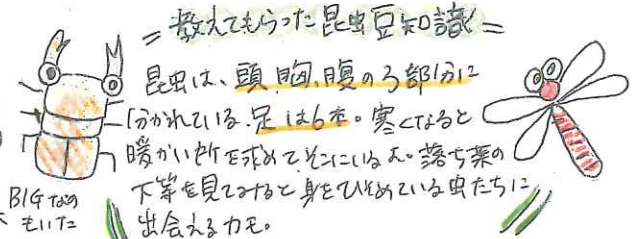 = 教えてもらった昆虫豆知識! =
昆虫は、頭、胸、腹の3部分に
分かれている。足は6本。寒くなると
暖かい所を求めてそこにいるよ。落ち葉の
下等を見てみると身をひそめている虫たちに
出会えるカモ。
BIGなの
もいた